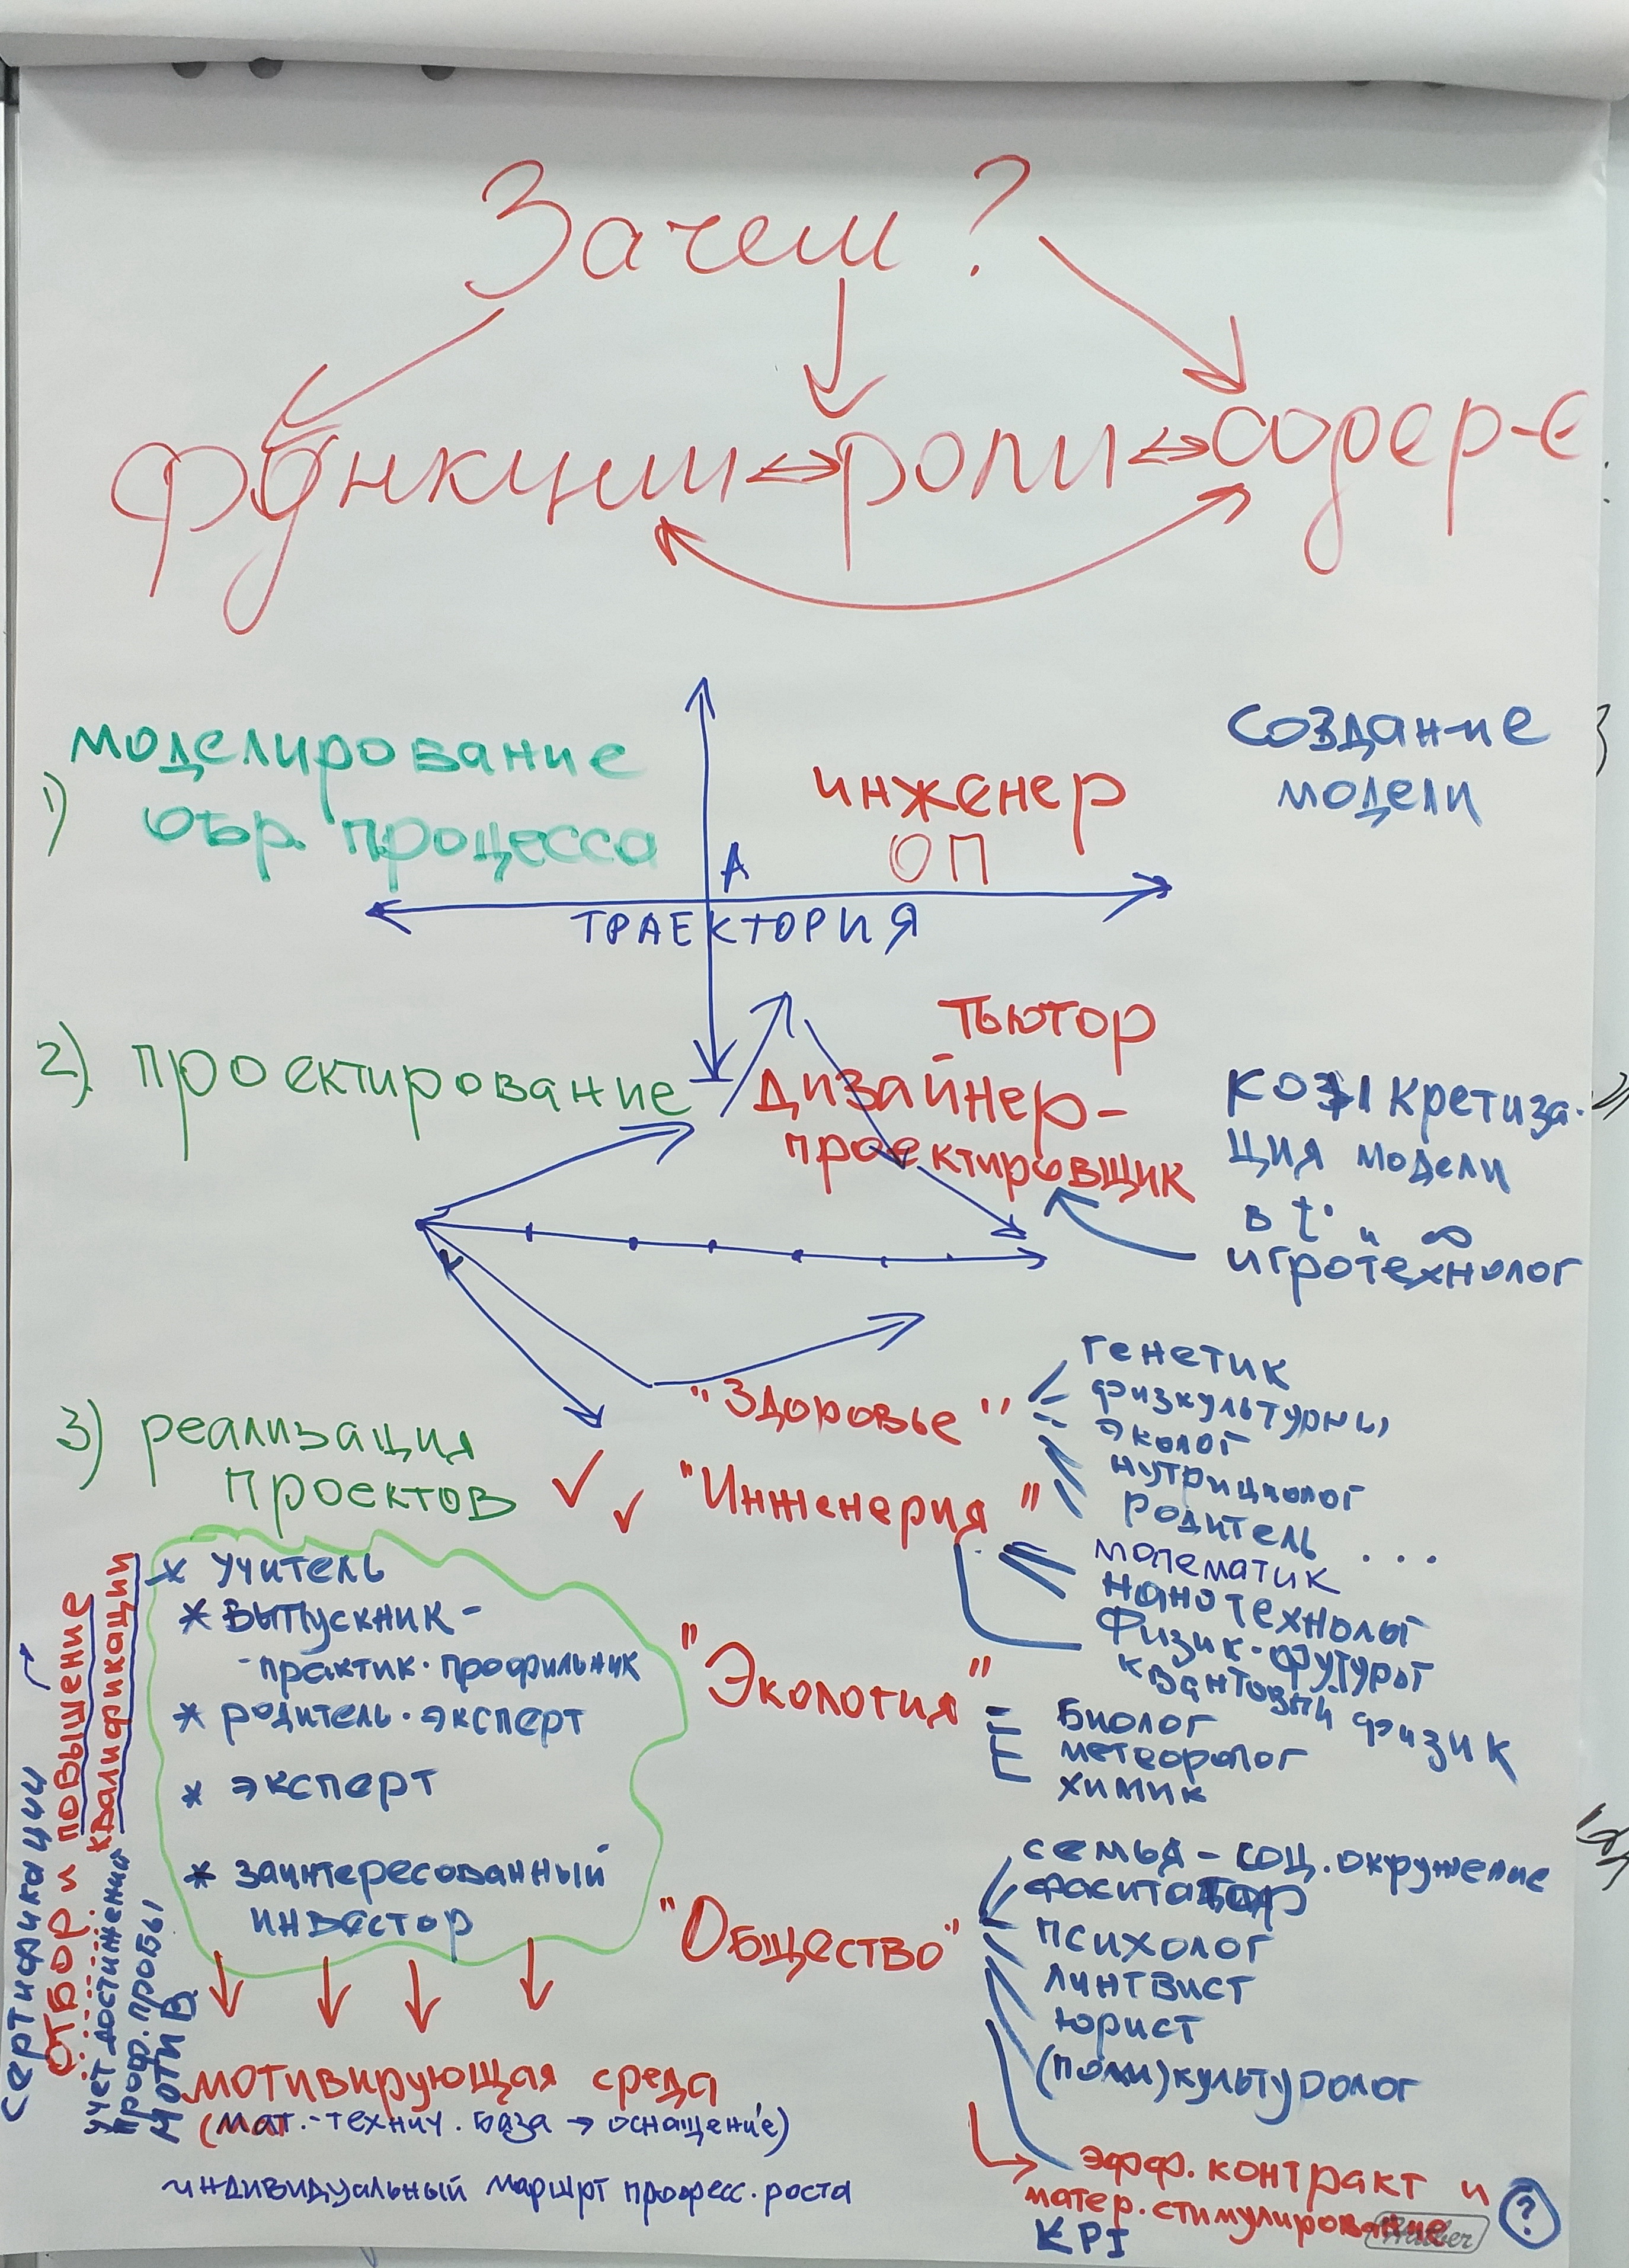 Зачем?
функции ↔ роли ↔ содер-е
1) моделирование
обр. процесса
инженер
ОП
создание
модели
А
ТРАЕКТОРИЯ
2) проектирование
тьютор
дизайнер-
проектировщик
конкретиза-
ция модели
в t° и ∞
игротехнолог
3) реализация
проектов
"Здоровье"
генетик
физкультурн
эколог
нутрициолог
родитель ...
"Инженерия"
математик
нанотехнолог
Физик-футуролог
квантовый физик
"Экология"
биолог
метеоролог
химик
"Общество"
семья - соц. окружение
фаситатор
психолог
лингвист
юрист
(поли)культуролог
* учитель
* выпускник -
-практик-профильник
* родитель-эксперт
* эксперт
* заинтересованный
инвестор
сертификации
отбор и повышение
квалификации
учет достижения
проф. пробы
мотив.
мотивирующая среда
(мат.-технич. база → оснащение)
индивидуальный маршрт професс. роста
эфф. контракт и
матер. стимулирование
KPI
?